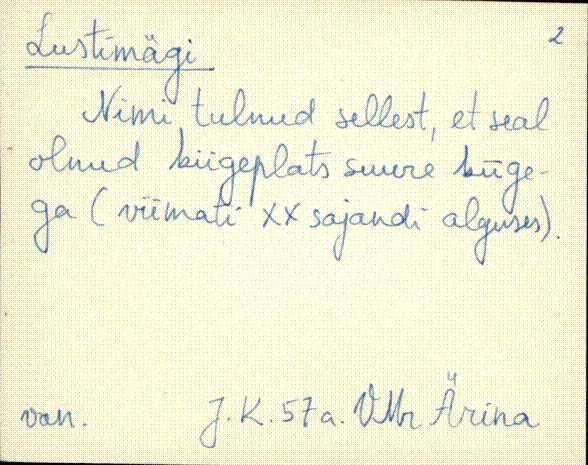 2
Lustimägi
Nimi tulnud sellest, et seal
olnud kiigeplats suure kiige-
ga (viimati XX sajandi alguses).
van. J.K. 57a. VMr Ärina